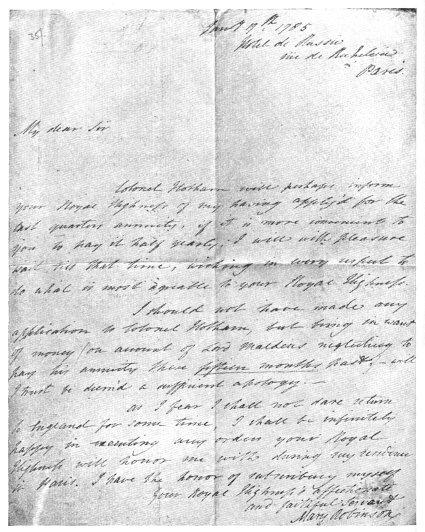 35
Jany 17th 1785
Hotel de Russie
rue de Richelieu
Paris.
My dear Sir
Colonel Hotham will perhaps inform
your Royal Highness of my having applyd for the
last quarters annuity, if it is more convenient to
you to pay it half yearly, I will with pleasure
wait till that time, wishing in every respect to
do what is most agreable to your Royal Highness.
I should not have made any
application to Colonel Hotham, but being in want
of money (on account of Lord Maldens neglecting to
pay his annuity these fifteen months past,) will
I trust be deem'd a sufficient apology.—
as I fear I shall not dare return
to England for some time, I shall be infinitely
happy in executing any orders your Royal
Highness will honor me with during my residence
in Paris. I have the honor of subscribing myself
Your Royal Highness's affectionate
and faithful Servant
Mary Robinson